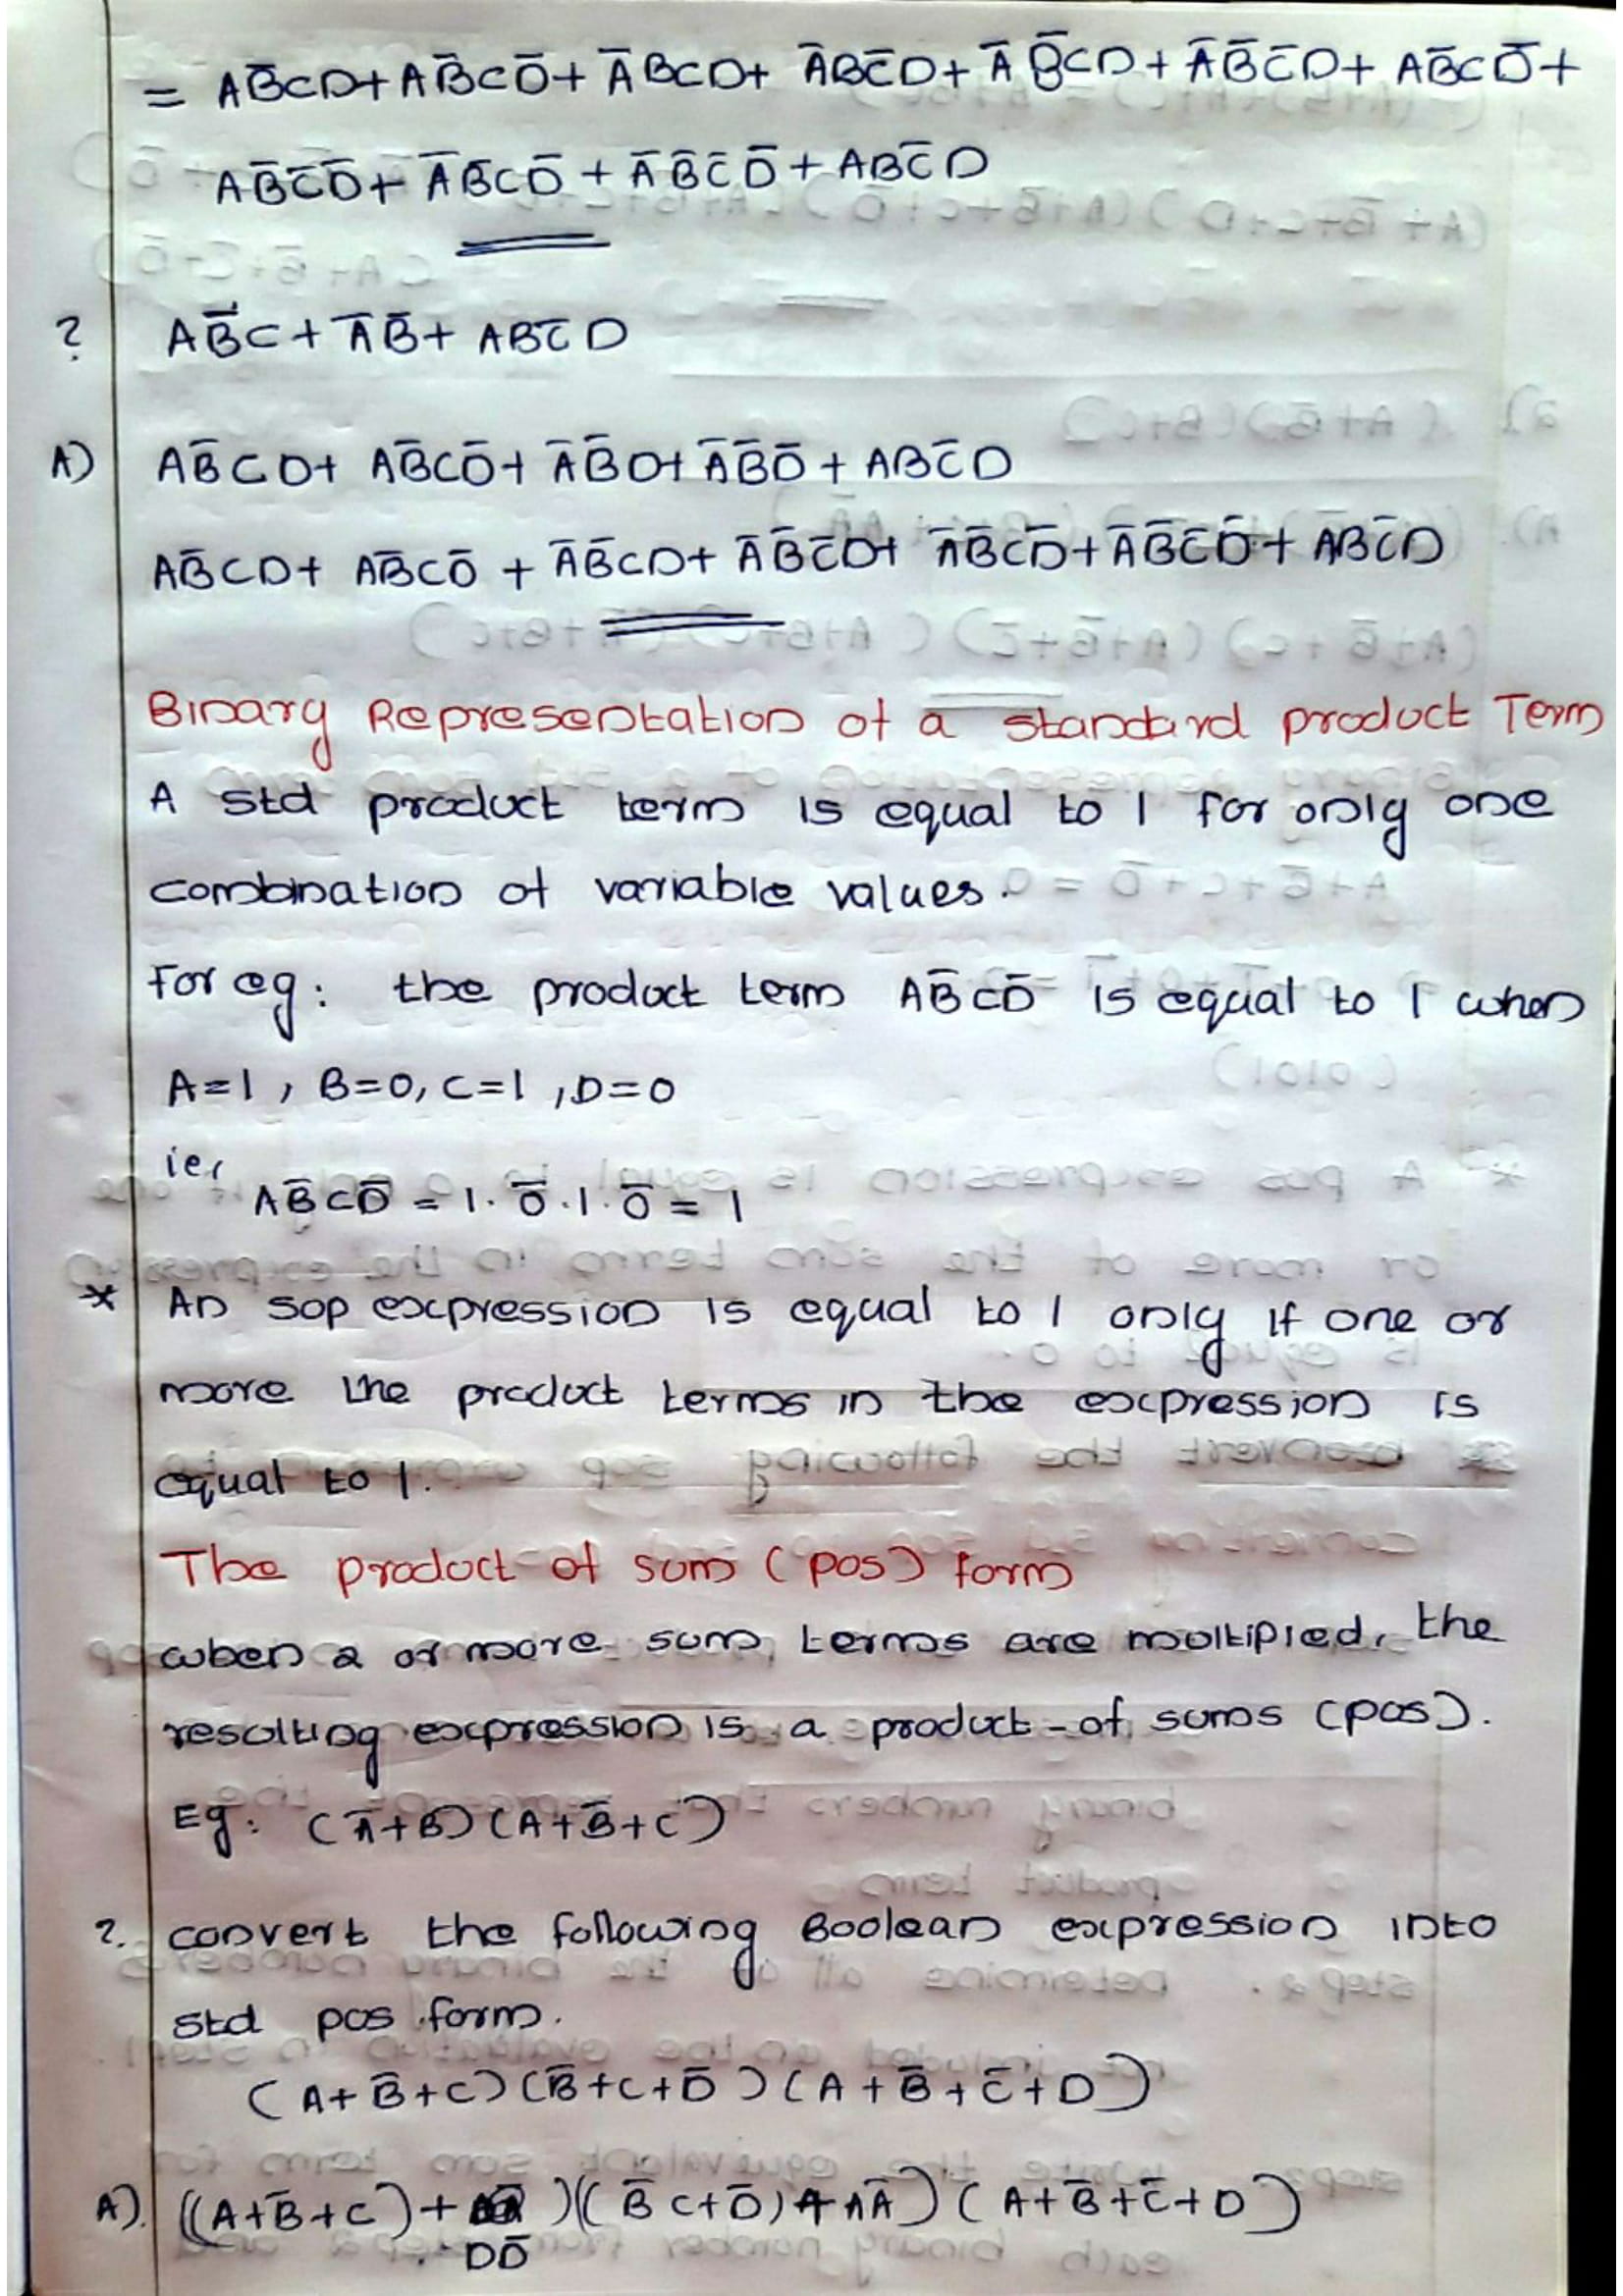 = AB̄CD+AB̄CD̄+ĀBCD+ ĀBC̄D+ĀB̄CD+ĀB̄C̄D+ AB̄CD̄+
AB̄C̄D̄+ĀB̄CD̄+ĀB̄C̄D̄+ABC̄D
? AB̄C+ĀB̄+ ABC̄D
A) AB̄CD+ AB̄CD̄+ ĀB̄D+ĀB̄D̄+ABC̄D
AB̄CD+ AB̄CD̄ + ĀB̄CD+ ĀB̄C̄D+ ĀB̄CD̄+ĀB̄C̄D̄+ ABC̄D
Binary Representation of a standard product Term
A std product term is equal to 1 for only one
combination of variable values.
For eg: the product term AB̄CD̄ is equal to 1 when
A=1, B=0, C=1, D=0
ie,
AB̄CD̄ = 1. 0̄ .1. 0̄ = 1
* An sop expression is equal to 1 only if one or
more the product terms in the expression is
equal to 1.
The product-of sum (pos) form
when 2 or more sum terms are moltipied, the
resulting expression is a product-of sums (pos).
Eg: (Ā+B)(A+B̄+C)
?. convert the following Boolean expression into
std pos form.
(A+B̄+C)(B̄+C+D̄)(A+B̄+C̄+D)
A). ((A+B̄+C)+ )((B̄ C+D̄)+AĀ)(A+B̄+C̄+D)
DD̄